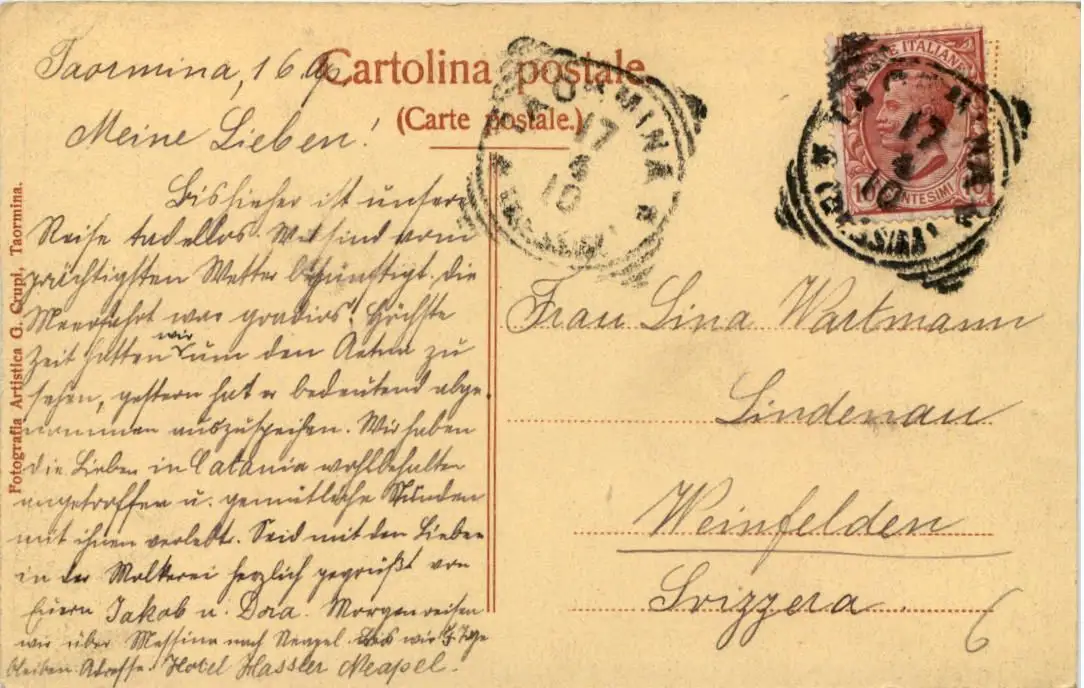 Cartolina postale
(Carte postale.)
Taormina, 16.
Meine Lieben!
Bishieher ist unsere
Reise tadellos. Wir sind vom
prächtigsten Wetter begünstigt. die
Meerfahrt war gradios! Höchste
Zeit hatten wir um den Aetna zu
sehen, gestern hat er bedeutend abge-
nommen auszuspeihen. Wir haben
die Lieben in Catania wohlbehalten
angetroffen u. gemütliche Stunden
mit ihnen verlebt. Seid mit den Lieben
in der Molkerei herzlich gegrüßt von
Euern Jakob u. Dora. Morgen reisen
wir über Messina nach Neapel. wo wir Tage
bleiben. Adresse: Hotel Hassler Neapel.
Fotografia Artistica G. Crupi, Taormina.
TAORMINA
17
10
(MESSINA)
POSTE ITALIANE
10 CENTESIMI
TAORMINA
17
10
(MESSINA)
Frau Lina Wartmann
Lindenau
Weinfelden
Svizzera.
6